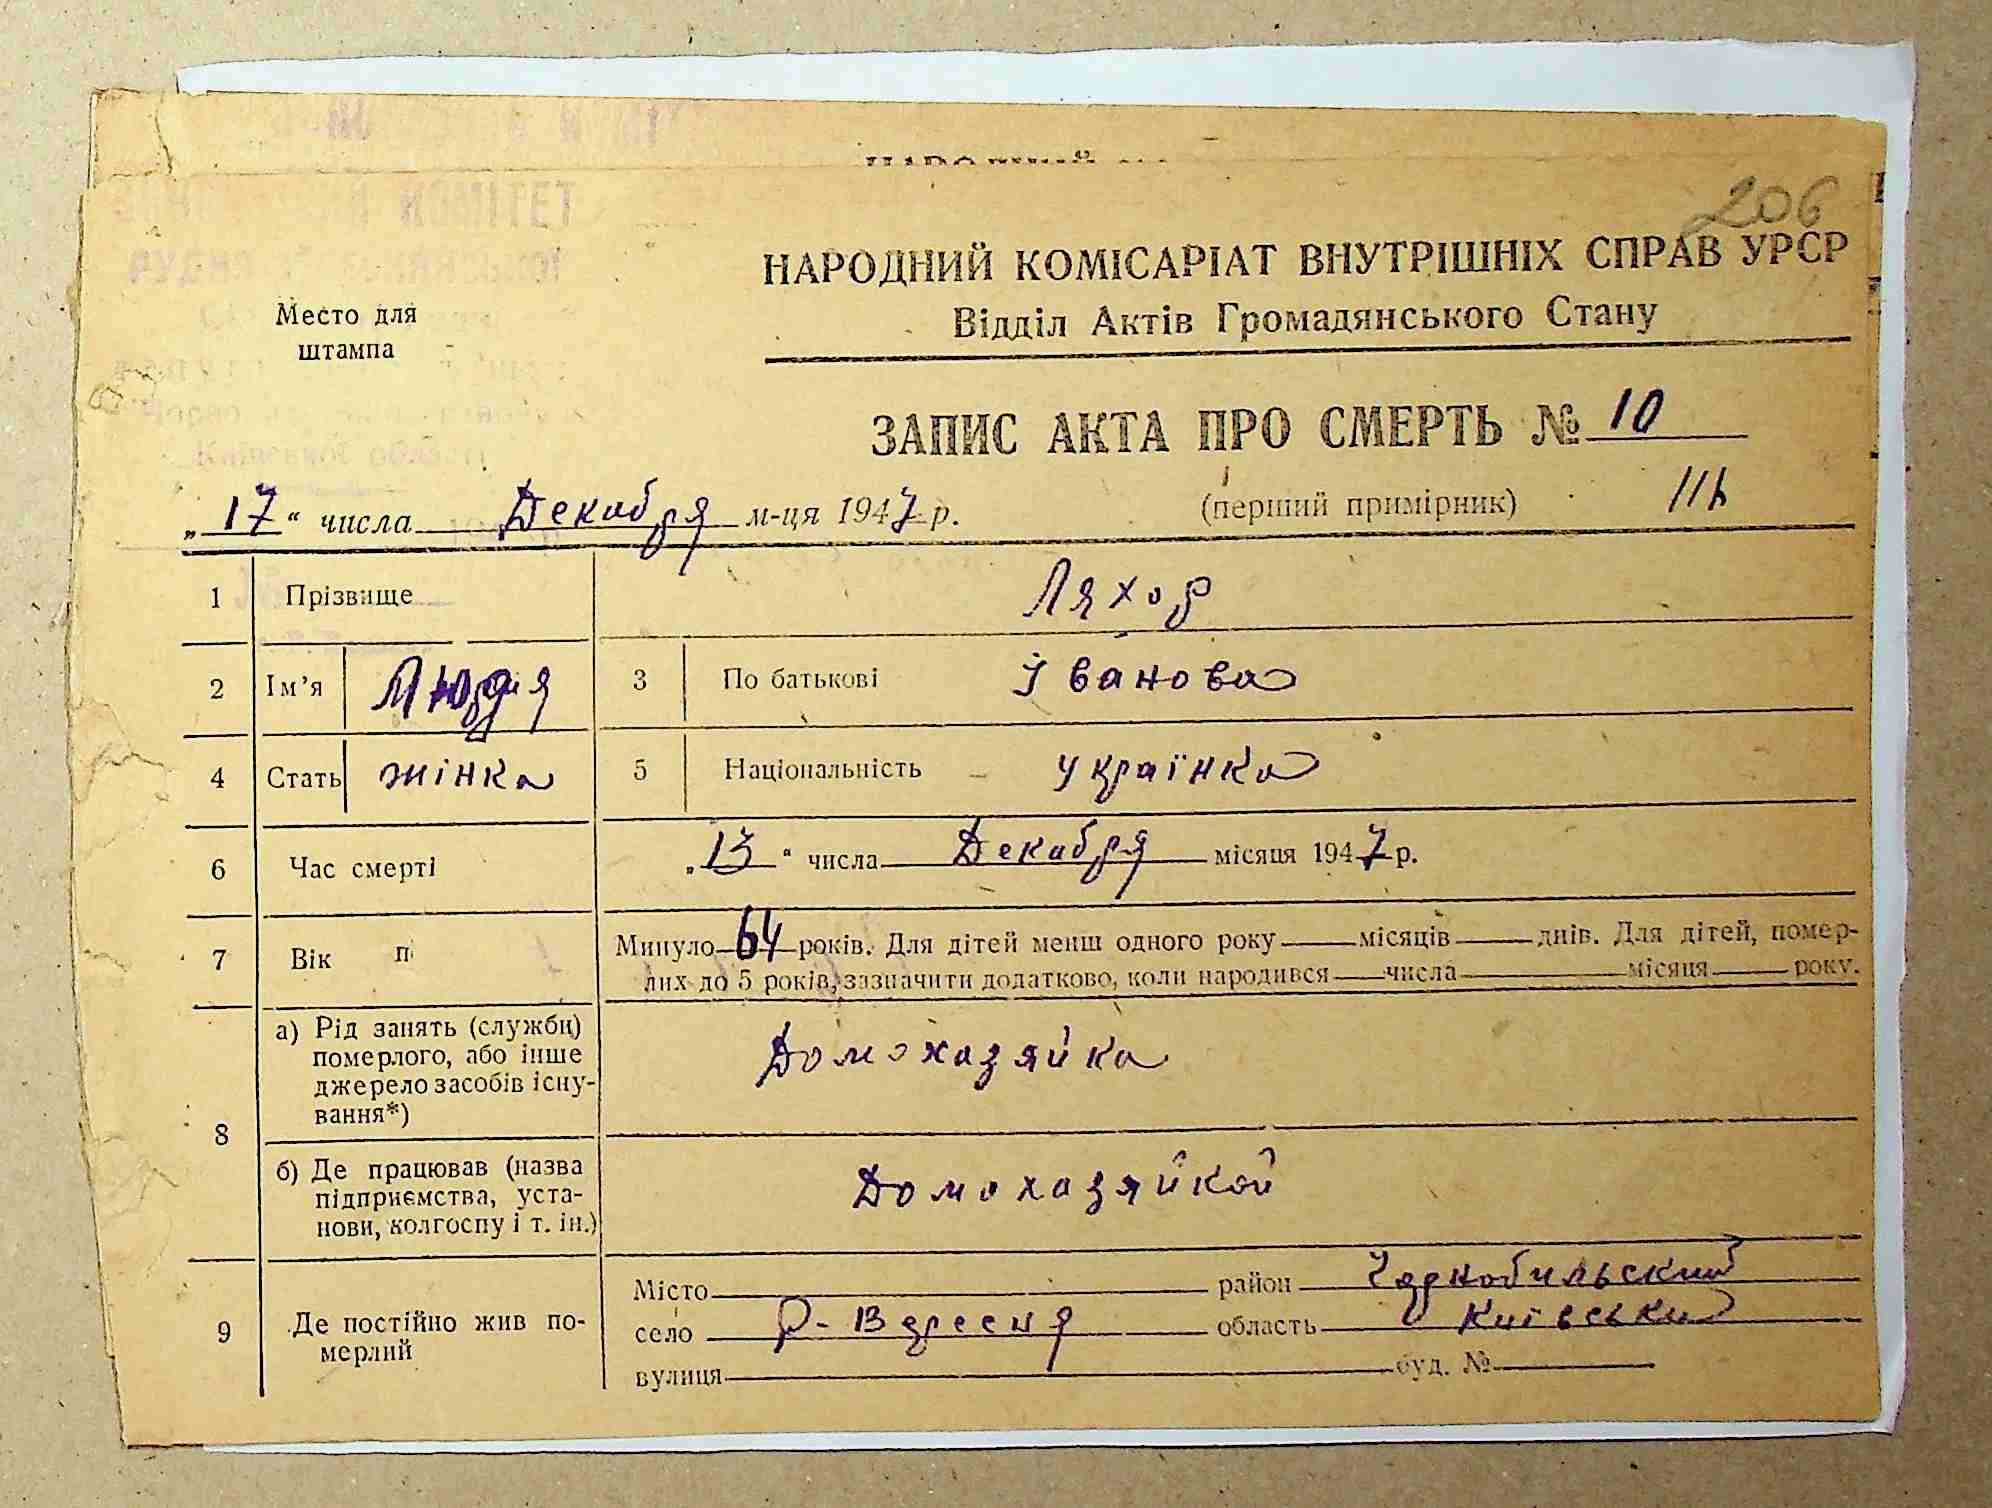 КОМІТЕТ
206
НАРОДНИЙ КОМІСАРІАТ ВНУТРІШНІХ СПРАВ УРСР
Відділ Актів Громадянського Стану
Место для
штампа
ЗАПИС АКТА ПРО СМЕРТЬ № 10
„17“ числа Декабря м-ця 1947 р. (перший примірник)
1 Прізвище Ляхор
2 Ім’я 3 По батькові Іванова
4 Стать жінка 5 Національність українка
6 Час смерті „13“ числа Декабря місяця 1947 р.
7 Вік п Минуло 64 років. Для дітей менш одного року місяців днів. Для дітей, помер-
лих до 5 років, зазначити додатково, коли народився числа місяця року.
8 а) Рід занять (служби) померлого, або інше джерело засобів існу-вання*) Домохазяйка
б) Де працював (назва підприємства, уста-нови, колгоспу і т. ін.) Домохазяйкой
9 Де постійно жив по-мерлий
Місто район Чорнобильский
село Р-Вересня область Київськи
вулиця буд. №